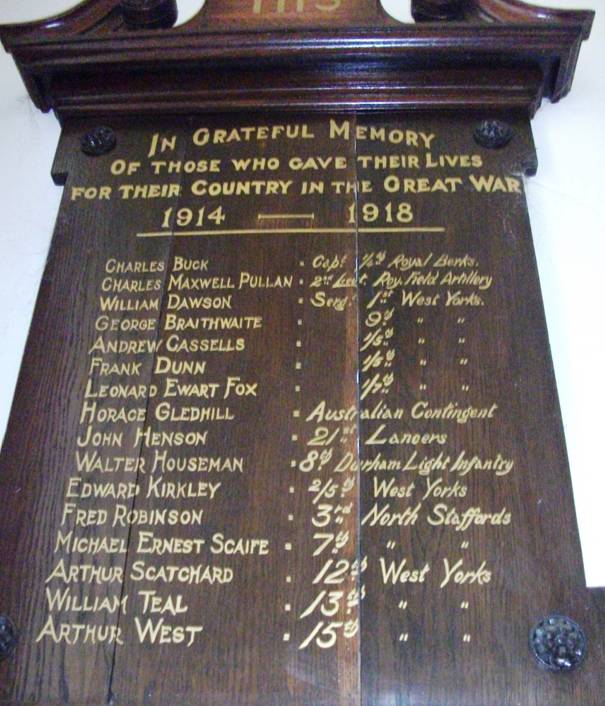 IHS
IN GRATEFUL MEMORY
OF THOSE WHO GAVE THEIR LIVES
FOR THEIR COUNTRY IN THE GREAT WAR
1914 — 1918
CHARLES BUCK • Capt. 1/4th Royal Berks.
CHARLES MAXWELL PULLAN • 2nd Lieut. Roy. Field Artillery
WILLIAM DAWSON • Sergt. 1st West Yorks.
GEORGE BRAITHWAITE • 9th " "
ANDREW CASSELLS • 1/5th " "
FRANK DUNN • " "
LEONARD EWART FOX • 1/7th " "
HORACE GLEDHILL • Australian Contingent
JOHN HENSON • 21st Lancers
WALTER HOUSEMAN • 8th Durham Light Infantry
EDWARD KIRKLEY • 2/5th West Yorks
FRED ROBINSON • 3rd North Staffords
MICHAEL ERNEST SCAIFE • 7th " "
ARTHUR SCATCHARD • 12th West Yorks
WILLIAM TEAL • 13th " "
ARTHUR WEST • 15th " "